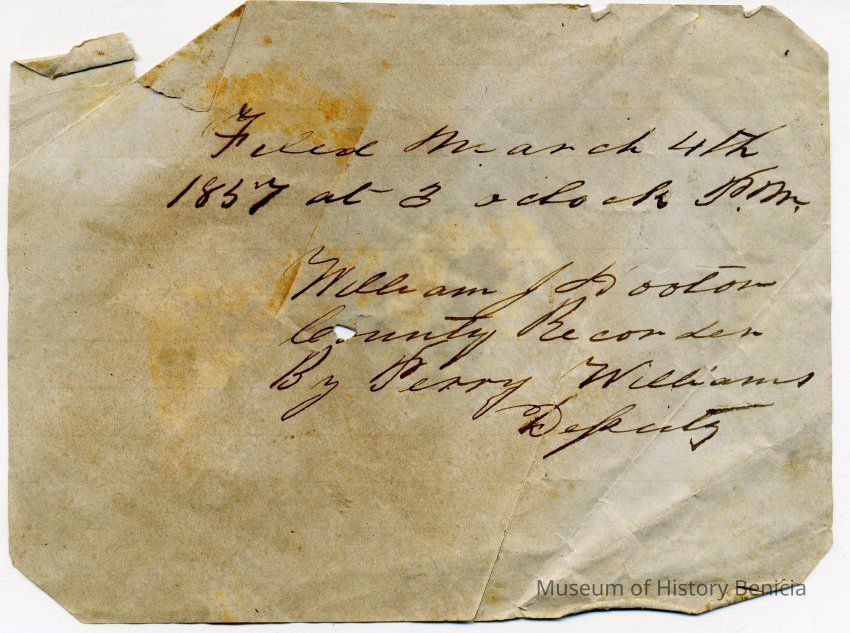 Filed March 4th
1857 at 3 oclock P.M.
William J Dooton
County Recorder
By Perry Williams
Deputy
Museum of History Benicia